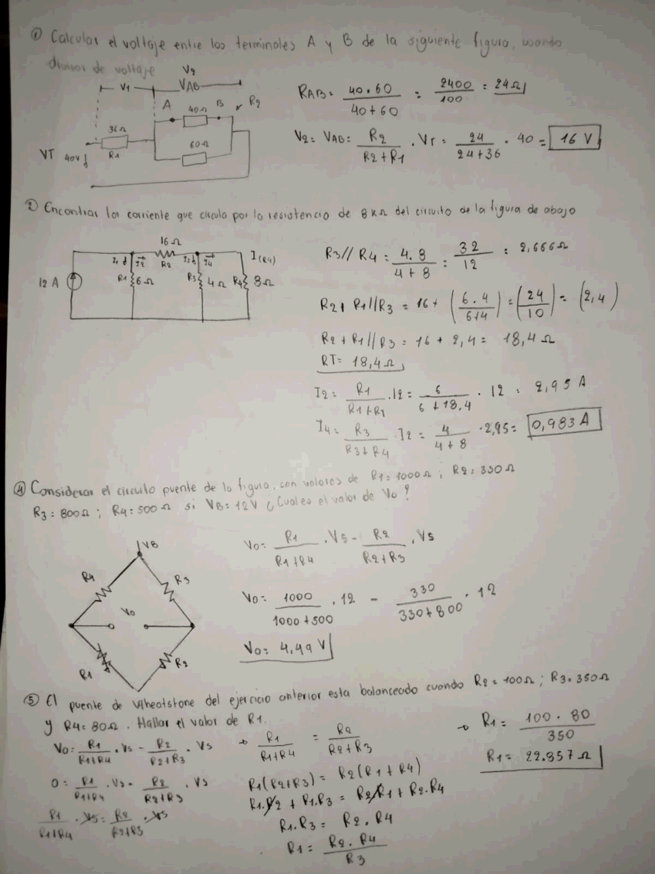 ① Calcular el voltaje entre los terminales A y B de la siguiente figura, usando
divisor de voltaje
V2
V1 VAB
A 40Ω B R2
36Ω
R1
60Ω
VT 40V
RAB = 40.60 / 40+60 = 2400 / 100 = 24Ω
V2 = VAB = R2 / R2+R1 . VT = 24 / 24+36 . 40 = 16 V
② Encontrar la corriente que circula por la resistencia de 8KΩ del circuito de la figura de abajo
16Ω
R2
I2 I(R4)
12 A R1 6Ω R3 4Ω R4 8Ω
R3//R4 = 4.8 / 4+8 = 32 / 12 = 2,666Ω
R2+ R1//R3 = 16 + (6.4 / 6+4) = (24 / 10) = (2,4)
R2+R1//R3 = 16 + 2,4 = 18,4Ω
RT = 18,4Ω
I2 = R1 / R1+R2 . I2 = 6 / 6+18,4 . 12 = 2,95 A
I4 = R3 / R3+R4 . I2 = 4 / 4+8 . 2,95 = 0,983A
④ Considerar el circuito puente de la figura, con valores de R1=1000Ω ; R2=330Ω
R3=800Ω ; R4=500Ω si VB=12V ¿Cual es el valor de Vo?
VB
R4 R3
Vo
R1 R2
Vo = R1 / R1+R4 . VS - R2 / R2+R3 . VS
Vo = 1000 / 1000+500 . 12 - 330 / 330+800 . 12
Vo = 4,49 V
⑤ El puente de Wheatstone del ejercicio anterior esta balanceado cuando R2=100Ω ; R3=350Ω
y R4=80Ω. Hallar el valor de R1.
Vo = R1 / R1+R4 . VS - R2 / R2+R3 . VS
0 = R1 / R1+R4 . VS - R2 / R2+R3 . VS
R1 / R1+R4 . VS = R2 / R2+R3 . VS
→ R1 / R1+R4 = R2 / R2+R3
R1(R2+R3) = R2(R1+R4)
R1.R2 + R1.R3 = R2.R1 + R2.R4
R1.R3 = R2.R4
R1 = R2.R4 / R3
→ R1 = 100.80 / 350
R1 = 22.857Ω